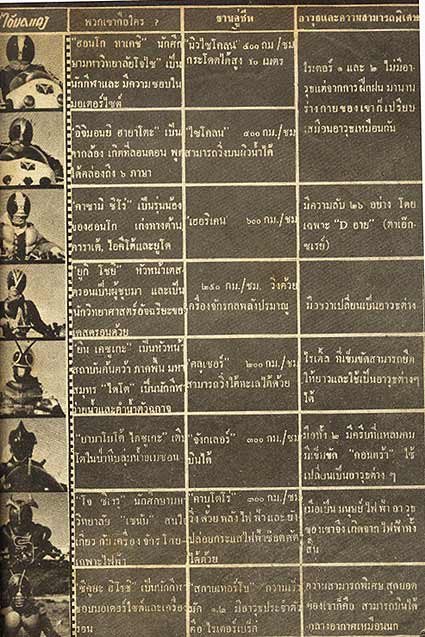 ไอ้มดแดง
พวกเขาคือใคร ?
ยานคู่ชีพ
อาวุธและความสามารถพิเศษ
"ฮอนโก ทาเคชิ" นักศึก
ษามหาวิทยาลัยโจไซ" เป็น
นักกีฬาและ มีความชอบใน
มอเตอร์ไซค์
"นิวไซโคลน" ๕๐๐ กม./ชม
กระโดดได้สูง ๖๐ เมตร
ไรเดอร์ ๑ และ ๒ ไม่มีอา
วุธแต่จากการฝึกฝน มานาน
ร่างกาย ของ เขาก็เปรียบ
เสมือนอาวุธเหมือนกัน
"อิจิมอนยิ ฮายาโตะ" เป็น
ตากล้อง เกิดที่ลอนดอน พูด
ได้คล่องถึง ๖ ภาษา
"ไซโคลน" ๔๐๐ กม./ชม
สามารถวิ่งบนผิวน้ำได้
"คาซามิ ชิโร่" เป็นรุ่นน้อง
ของฮอนโก เก่งทางด้าน
คาราเต้, ไอคิโด้และยูโด
"เฮอริเคน" ๖๐๐ กม./ชม.
มีความลับ ๒๖ อย่าง โดย
เฉพาะ "D อาย" (ตาเอ๊ก
ซเรย์)
"ยูกิ โจยิ" หัวหน้าเดส
ครอนเป็นผู้ชุบมา และเป็น
นักวิทยาศาสตร์อัจฉริยะของ
เดสครอนด้วย
๒๕๐ กม./ชม. วิ่งด้วย
เครื่องจักรกลพลังปรมาณู
มือขวาเปลี่ยนเป็นอาวุธต่างๆ
"ยิน เคซูเกะ" เป็นหัวหน้า
สถาบันค้นคว้า ภาคพื้น มหา
สมุทร "ไคโต" เป็นนักกีฬา
ว่ายน้ำและดำน้ำตัวฉกาจ
"คลูเซอร์" ๒๐๐ กม./ชม.
สามารถวิ่งใต้ทะเลได้ด้วย
ไรเดิ้ล ที่เข็มขัดสามารถยืด
ให้ยาวและใช้เป็นอาวุธต่างๆ
ได้
"ยามาโมโต้ ไดซูเกะ" เติบ
โตในป่าทึบลุ่มน้ำอเมซอน
"จังเกลอร์" ๓๐๐ กม./ชม
บินได้
มือทั้ง ๒ มีครีบที่แหลมคม
มีเข็มขัด "คอนดร้า" ใช้
เปลี่ยนเป็นอาวุธต่าง ๆ
"โจ ชิเงรุ" นักศึกษามหา
วิทยาลัย "เซนัน" สนใจ
เกี่ยวกับ เครื่องจักร โดย
เฉพาะไฟฟ้า
"คาบูโตโร่" ๓๐๐ กม./ชม
วิ่งด้วย พลังไฟฟ้าและยัง
ปล่อยกระแสไฟฟ้าช็อตศัตรู
ได้ด้วย
เมื่อเป็น มนุษย์ ไฟฟ้า อาวุธ
ของเขาจึงเกิดจาก ไฟฟ้าทั้ง
สิ้น
ฮิโรชิ" เป็นนักกีฬา
ชอบมอเตอร์ไซค์และเครื่อง
ร่อน
"สกายเทอร์โบ" ความเร็ว
มัค ๑.๒ มีอาวุธประจำตัว
คือ ไรเดอร์เบร็ก
ความสามารถพิเศษ สุดยอด
ของเขาก็คือ สามารถบินได้
กลางอากาศเหมือนนก